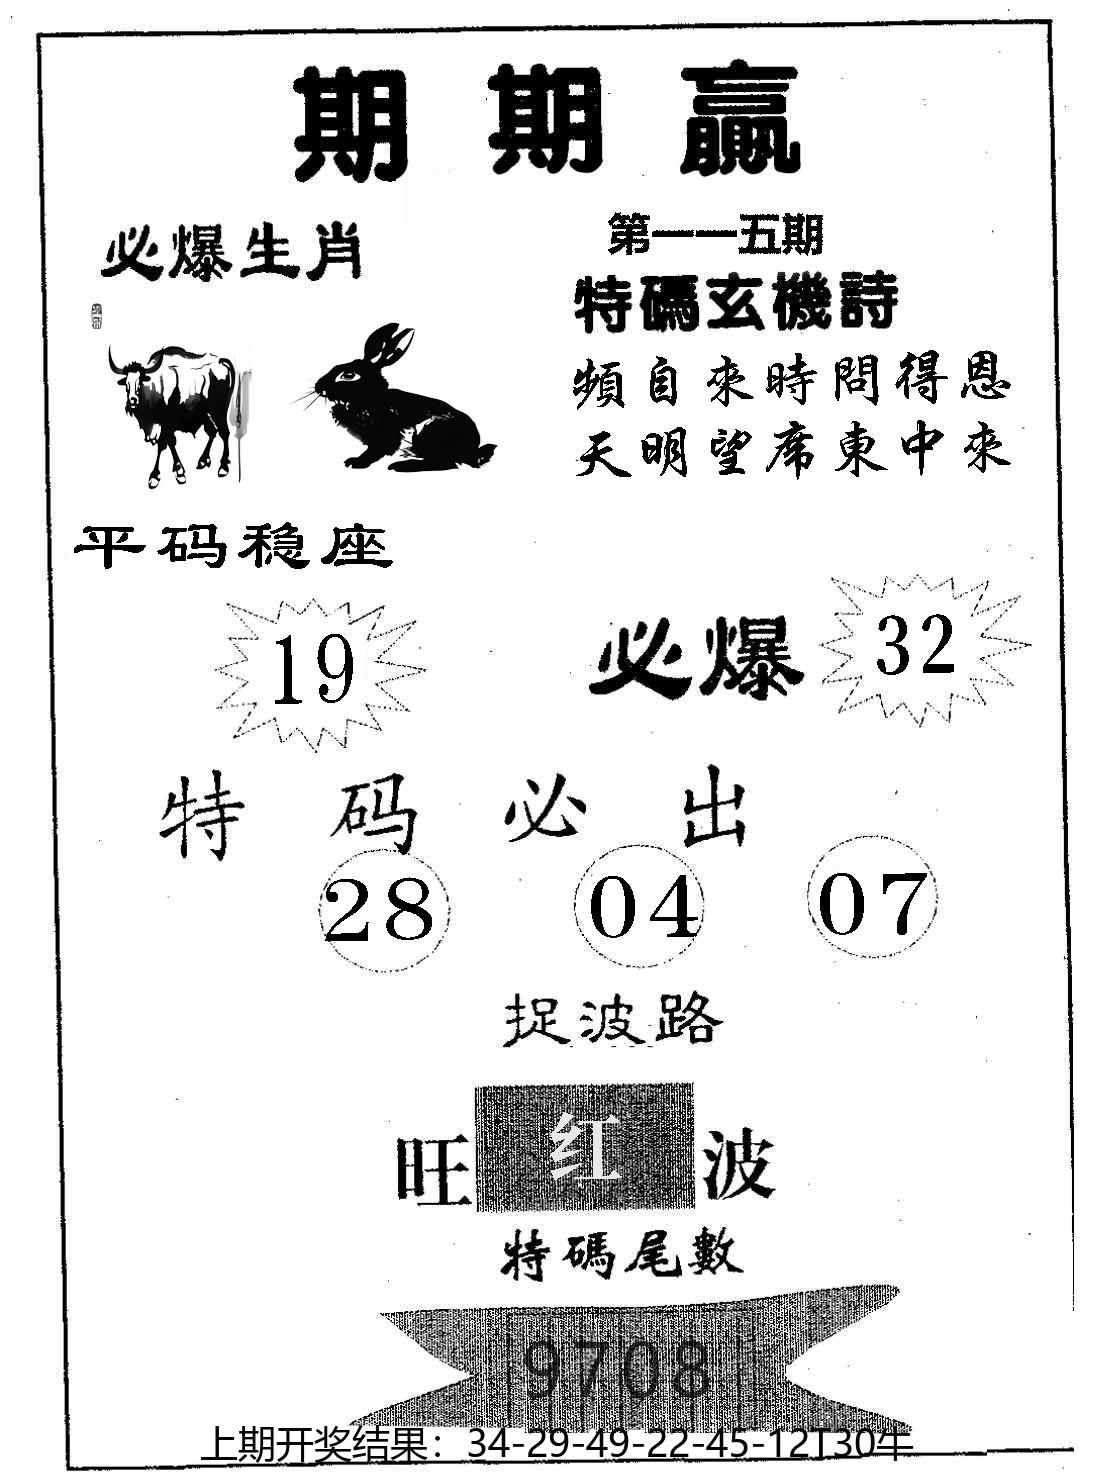 期期贏
必爆生肖
第一一五期
特碼玄機詩
頻自來時問得恩
天明望席東中來
平码稳座
19
必爆
32
特码必出
28 04 07
捉波路
旺红波
特碼尾數
9708
上期开奖结果：34-29-49-22-45-12T30牛